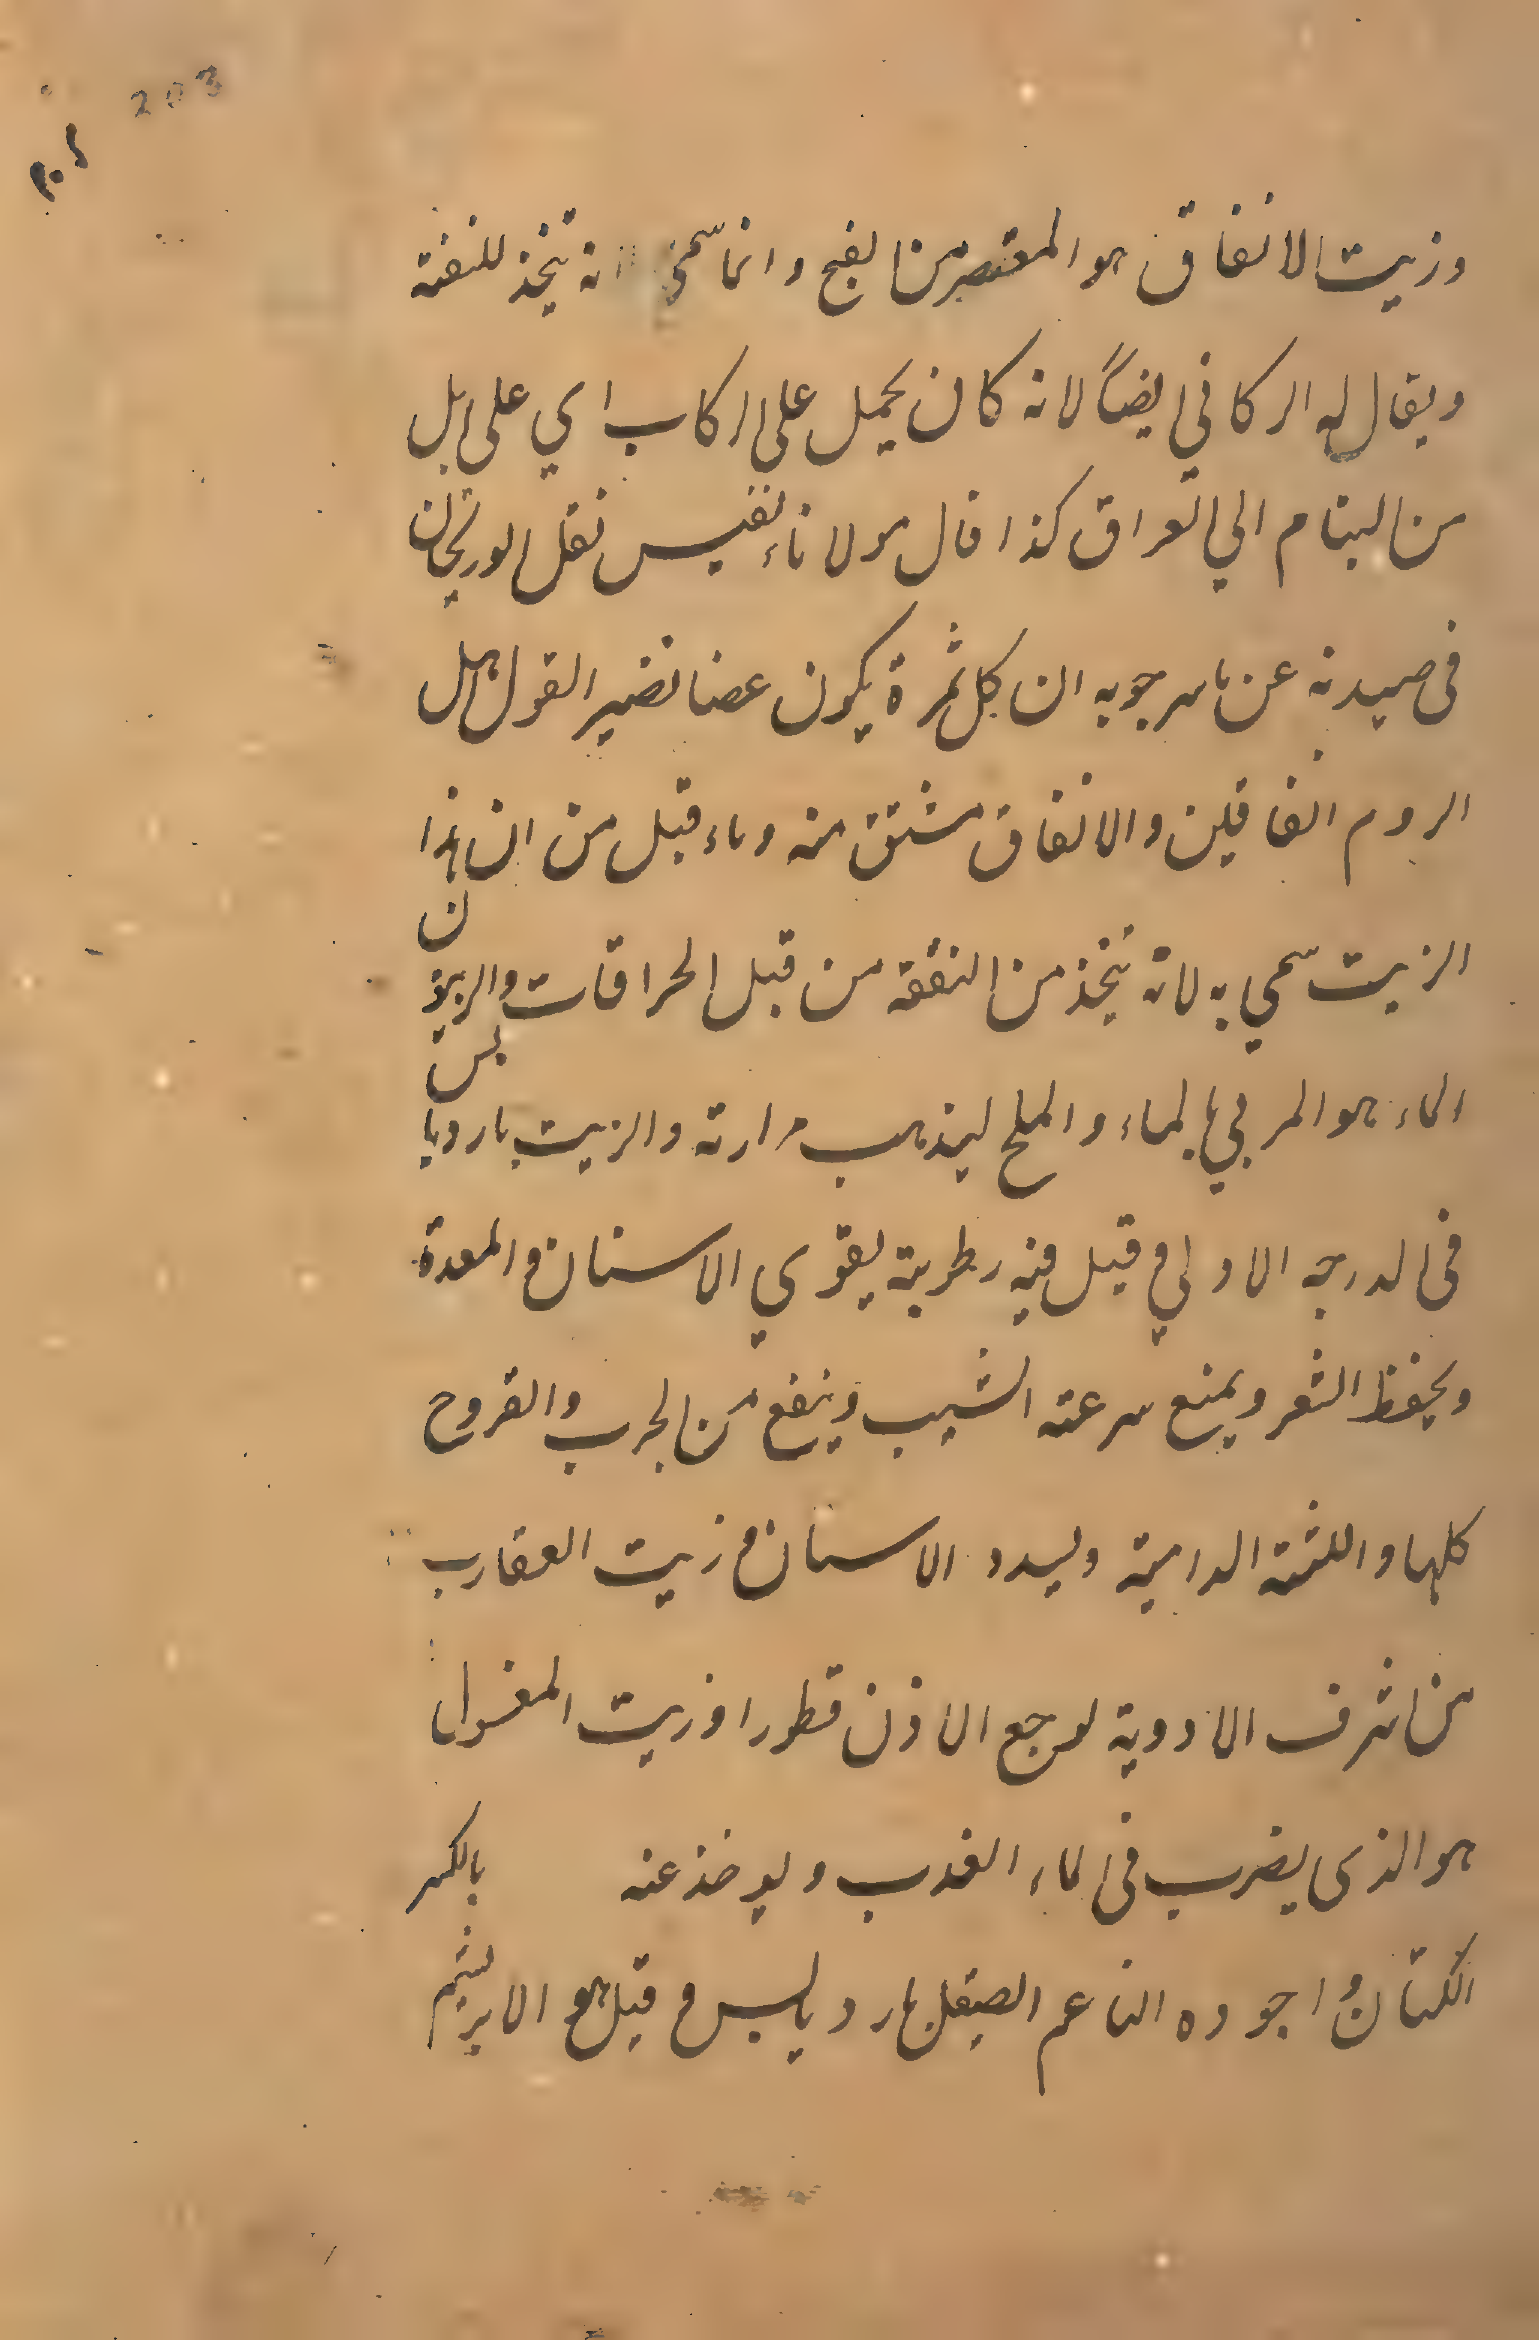 203
٢٠٣
وزيت الانفاق هو المعتصر من الفج وانما سمي انه يتخذ للنفقة
ويقال له الركابي ايضاً لانه كان يحمل على الركاب اي على ابل
من الشام الي العراق كذا قال مولانا نفيس نقل ابوريحان
في صيدنه عن ماسرجويه ان كل ثمرة يكون غضا نضير القول اهل
الروم انفاقين والانفاق مشتق منه وماء قيل من ان هذا
الزيت سمي به لانه يتخذ من النفقة من قبل الحرافات والزيتون
الماء هو المربي بالماء والملح ليذهب مرارته والزيت بارد يابس
في الدرجه الاولي وقيل فيه رطوبة يقوي الاسنان والمعدة
ويحفظ الشعر ويمنع سرعته الشيب وينفع من الجرب والقروح
كلها واللثته الدامية ويسدد الاسنان وزيت العقارب
من اشرف الادوية لوجع الاذن قطورا وزيت المغسول
هو الذي يضرب في الماء العذب ويوخذ عنه بالكسر
الكتان واجوده الناعم الصيقل بارد يابس وقيل هو الابريشم